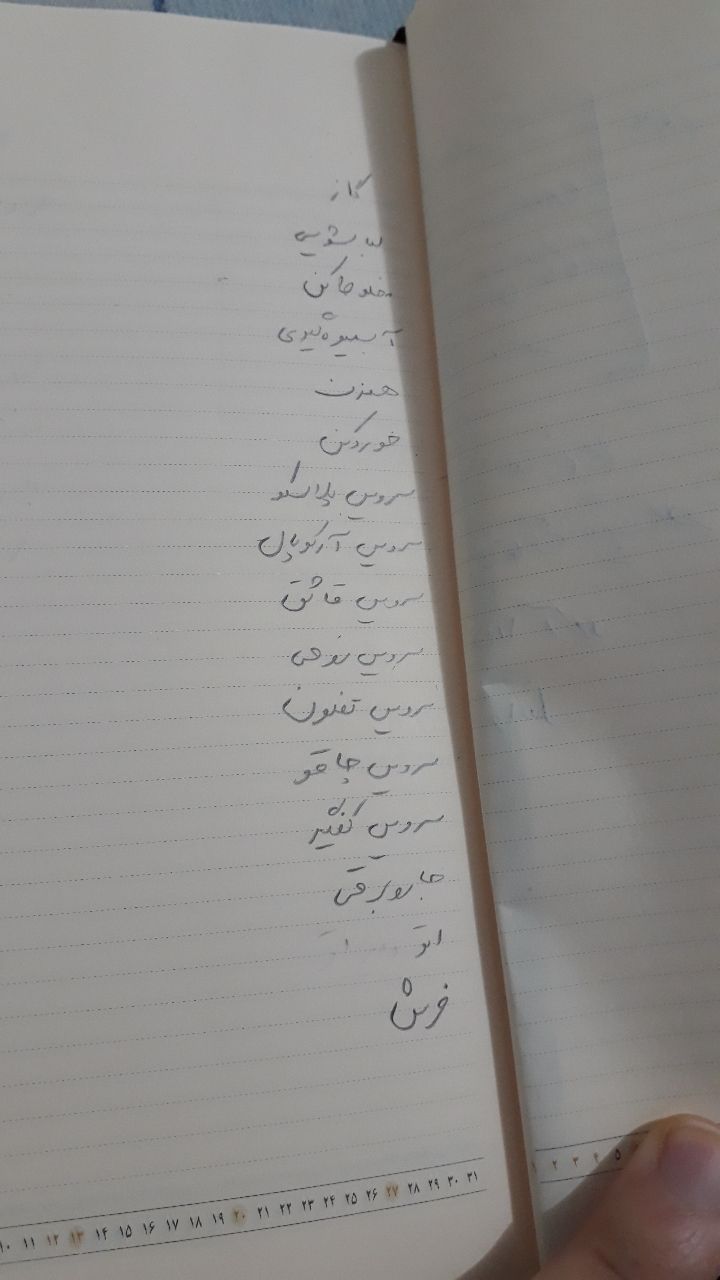 گاز
لباسشویی
مخلوط کن
آبمیوه گیری
همزن
خوردکن
سرویس پلاسکو
سرویس آرکوپال
سرویس قاشق
سرویس روحی
سرویس تفلون
سرویس چاقو
سرویس کفگیر
جاروبرقی
اتو
فرش
۱۰ ۱۱ ۱۲ ۱۳ ۱۴ ۱۵ ۱۶ ۱۷ ۱۸ ۱۹ ۲۰ ۲۱ ۲۲ ۲۳ ۲۴ ۲۵ ۲۶ ۲۷ ۲۸ ۲۹ ۳۰ ۳۱
۱ ۲ ۳ ۴ ۵